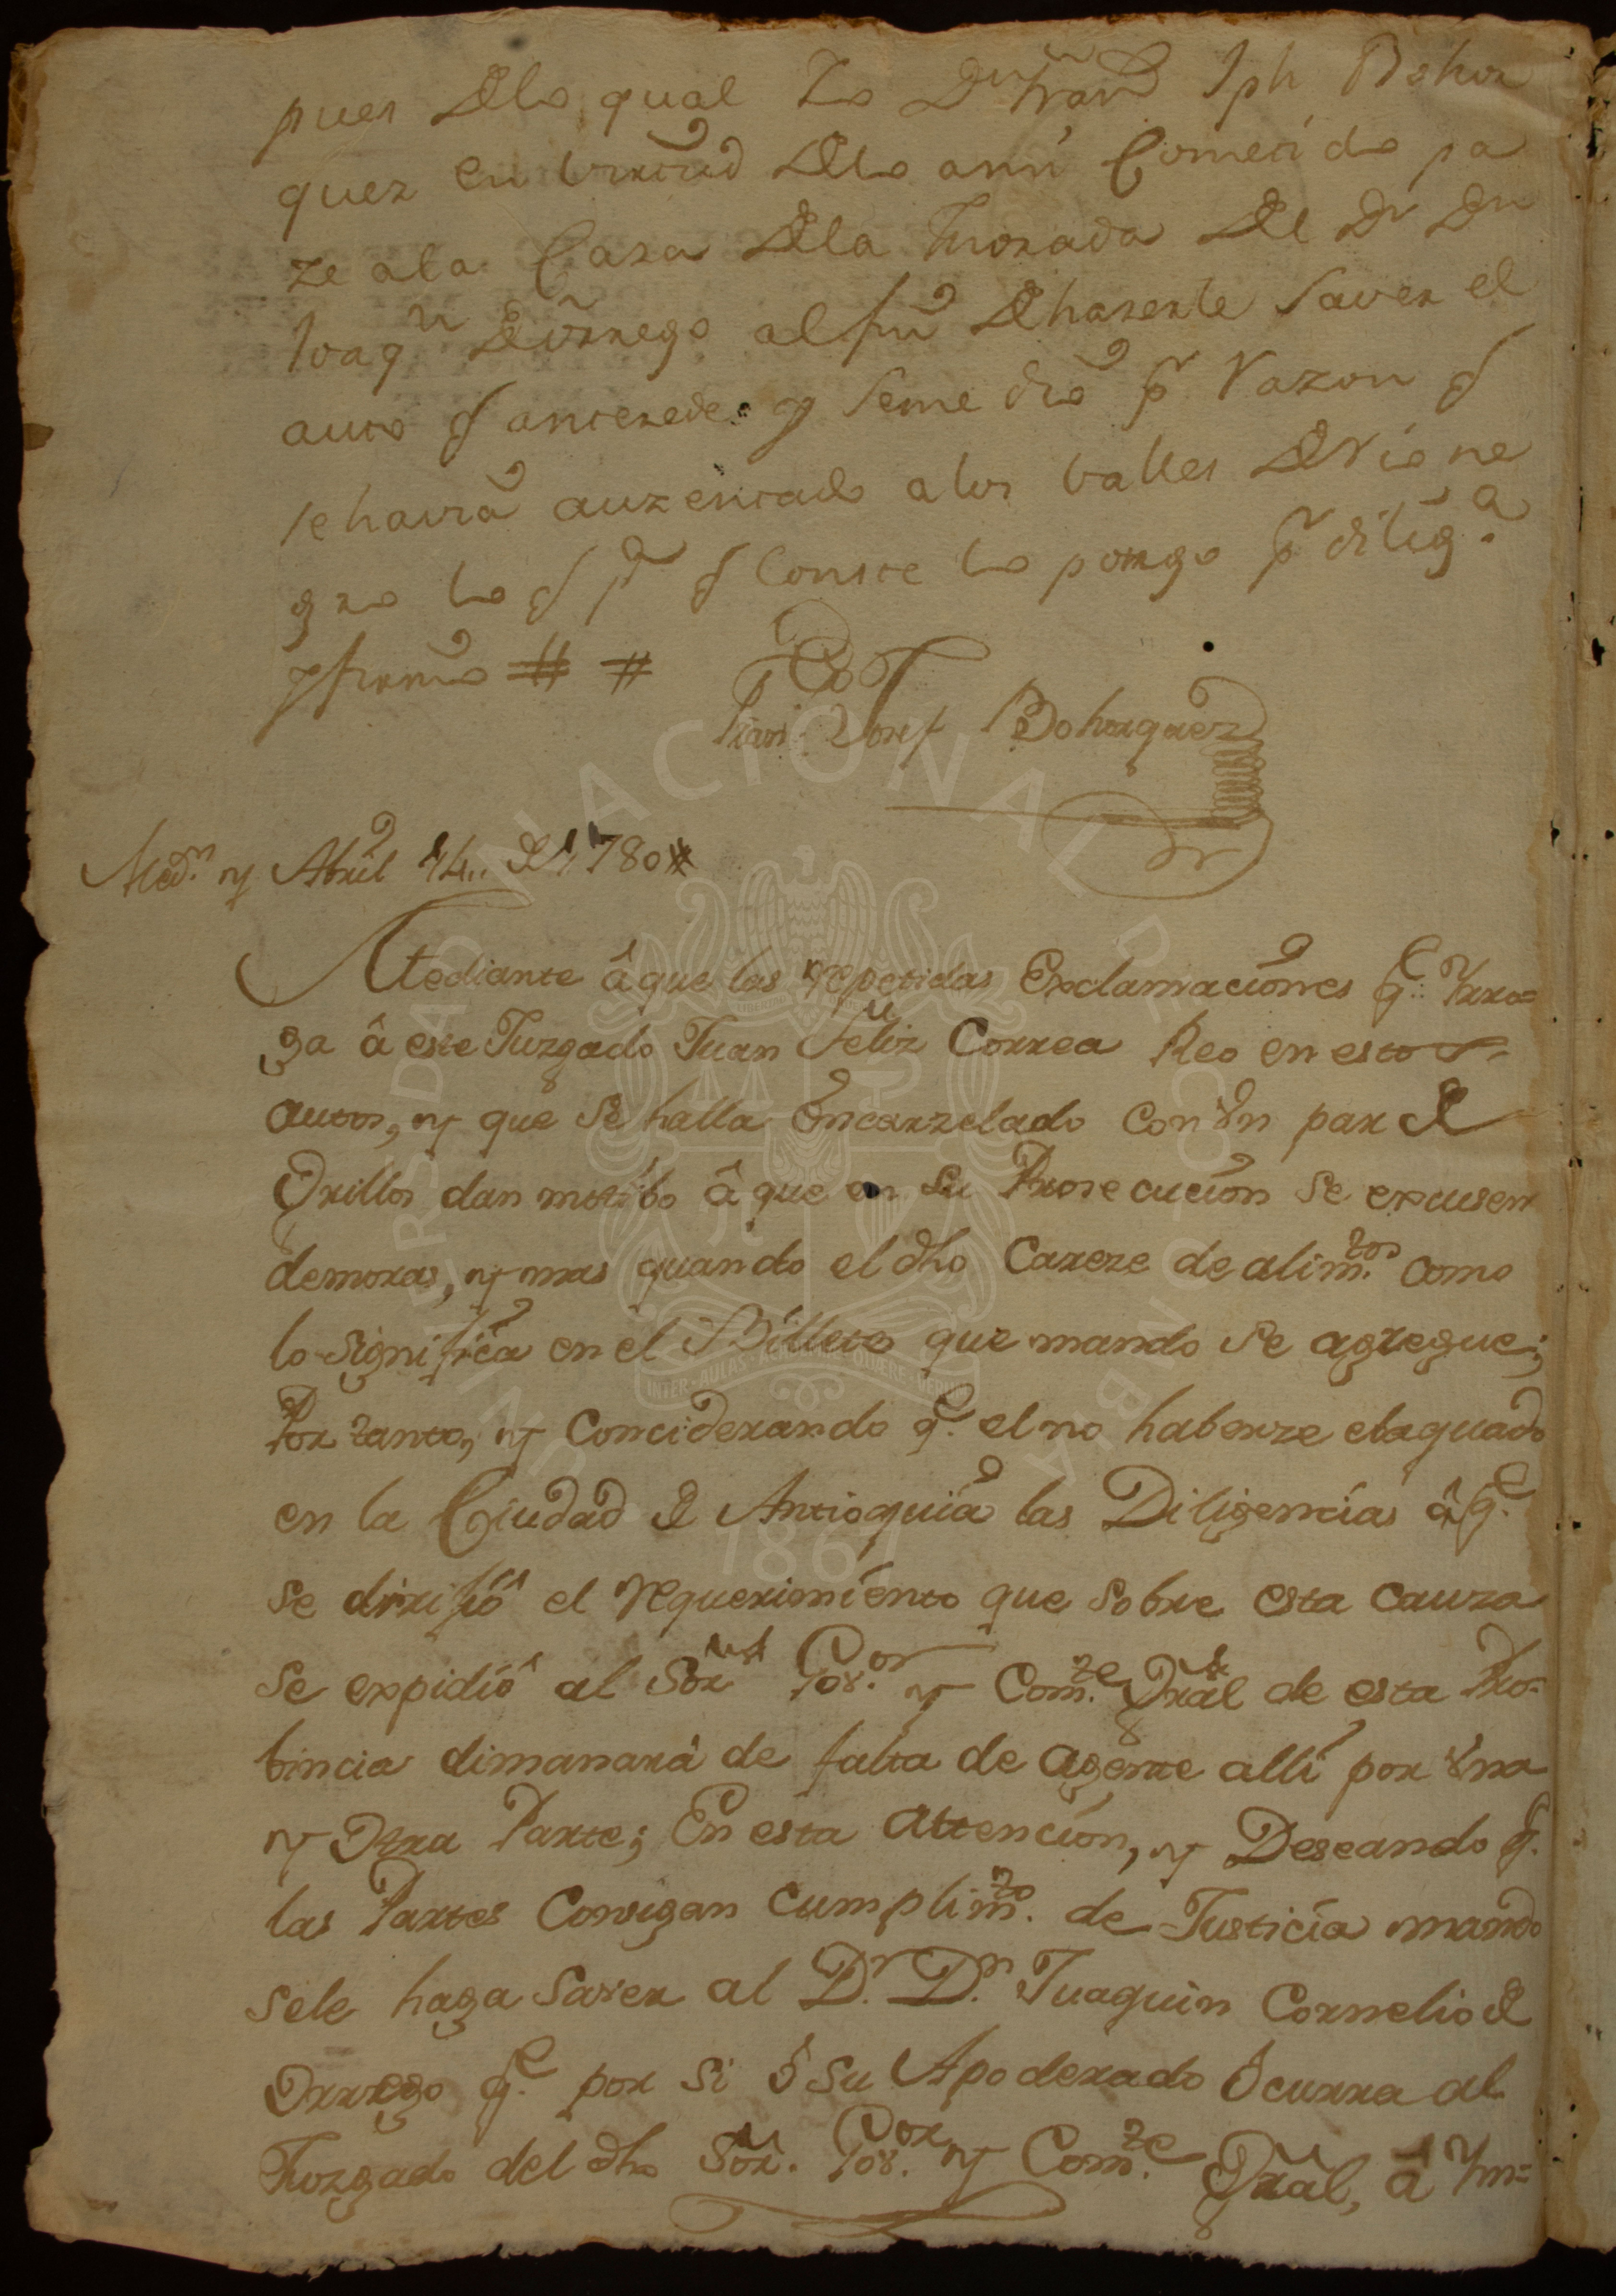 pues Delo qual Yo Dn Fran.co Jph Bohor
quez en birtud Delo ami Cometido pa
ze ala Casa Dela morada Del Dr Dn
Joaqn Deorrego al fin De haserle Saver el
auto q antesede y seme dio pr Razon q
sehavia auzentado alos Valles De Rione
gro lo q pa q Conste lo pongo pr diliga
y firmo # #
Fran Josef Bohorquez
Medn. y Abril 14,, De 1780 #
Mediante â que las repetidas Exclamaciones q.e Yrro=
ga â este Juzgado Juan Feliz Correa Reo en estos
autos, y que se halla encarzelado con un par de
Grillos dan motibo â que en su Prosecucion se excusen
demoras, y mas quando el dho Careze de alim.tos como
lo significa en el Billete que mando se agregue;
Por tanto, y Conciderando q.e el no haberze ebaquado
en la Ciudad de Antioquia las Diligencias â q.e
se dirijiô el requerimiento que sobre esta cauza
se expidiô al Sôr Gov.or y Com.te Gral de esta Pro-
bincia dimanarâ de falta de Agente alli por una
y Otra Parte; En esta Attencion, y Deseando q.e
las Partes Consigan Cumplim.to de Justicia mando
sele haga Saver al D.r D.n Juaquin Cornelio de
Orrego q.e por si ô su Apoderado Ocurra al
Juzgado del dho Sôr. Gov.or y Com.te Gral, â Ym=
UNIVERSIDAD NACIONAL DE COLOMBIA
INTER · AULAS · ACADEMIÆ · QUÆRE · VERUM
1867